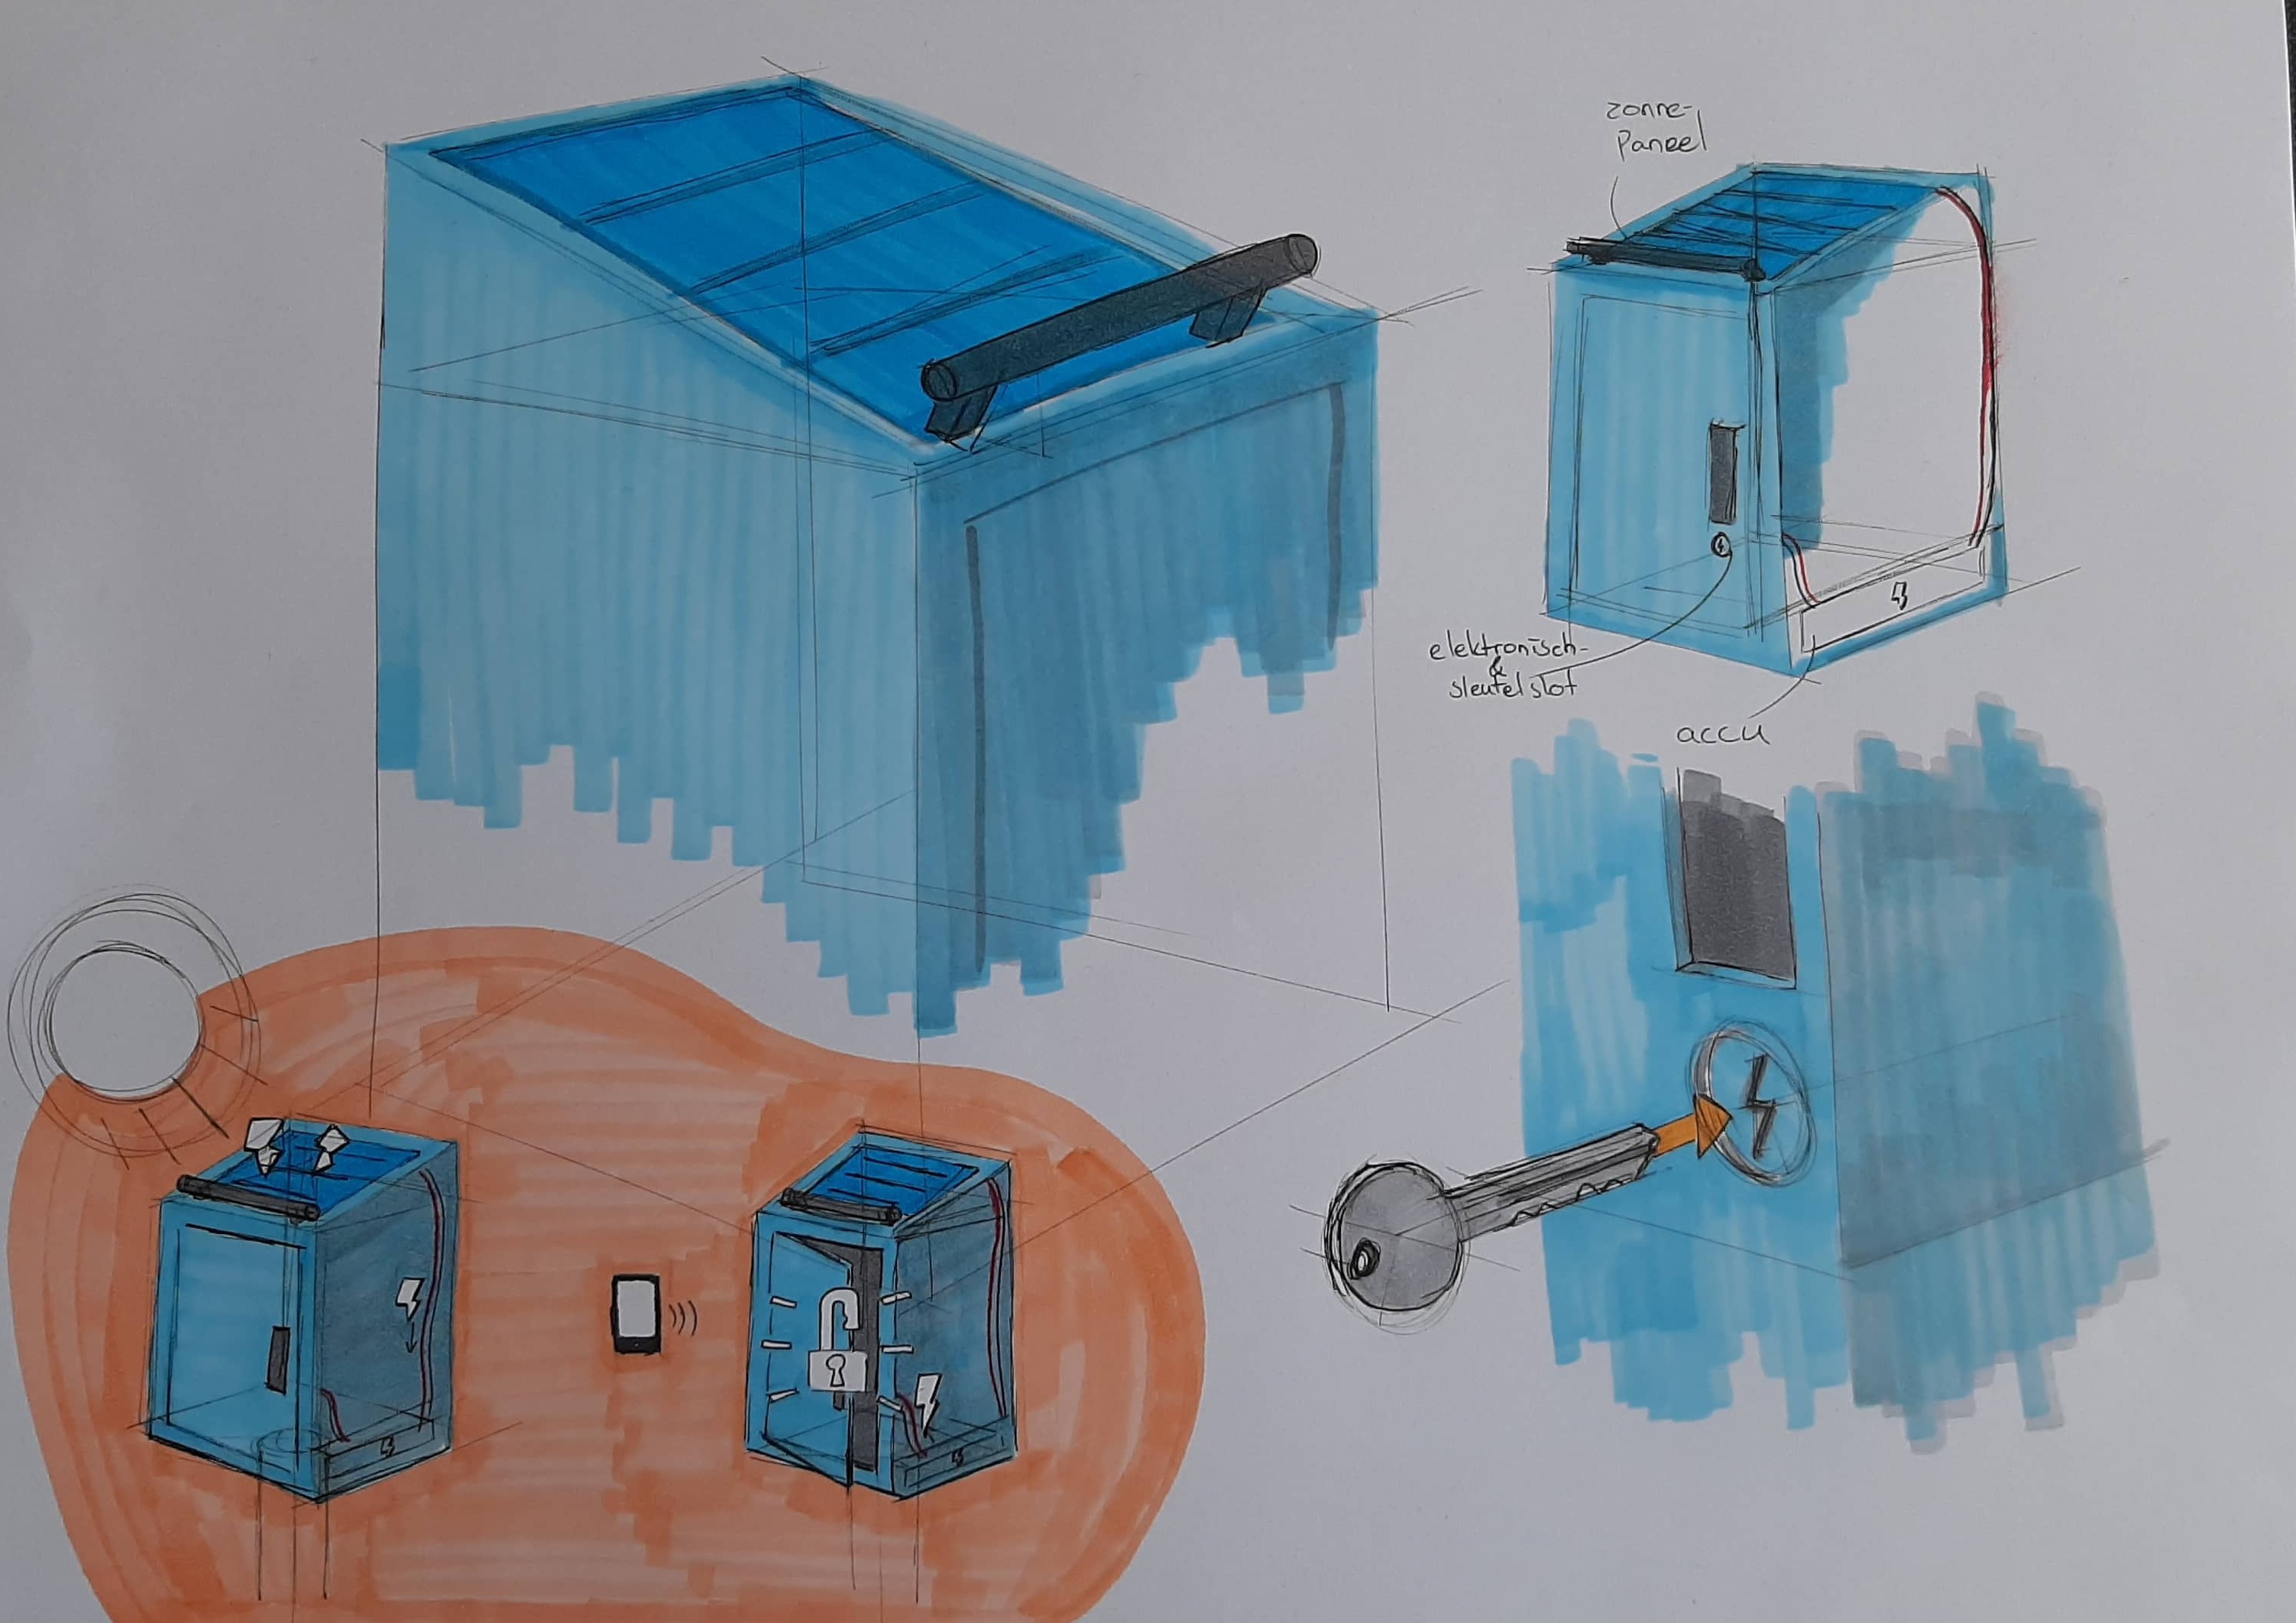 zonne-
paneel
elektronisch-
&
sleutelslot
accu